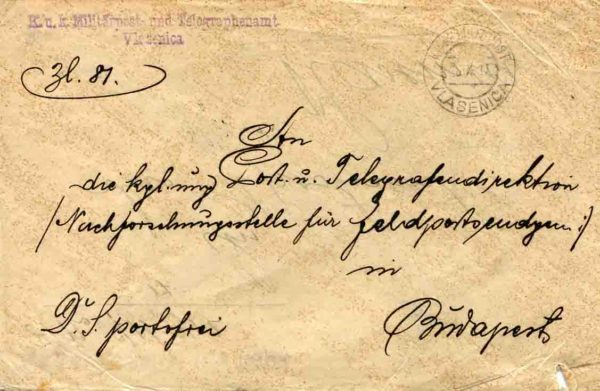 K. u. k. Militärpost- und Telegraphenamt
Vlasenica
Zl. 81.
VLASENICA
An
die kgl. ung Post. u. Telegrafendirektion
/Nachforschungsstelle für Feldpostsendgen:/
in
D. S. portofrei
Budapest